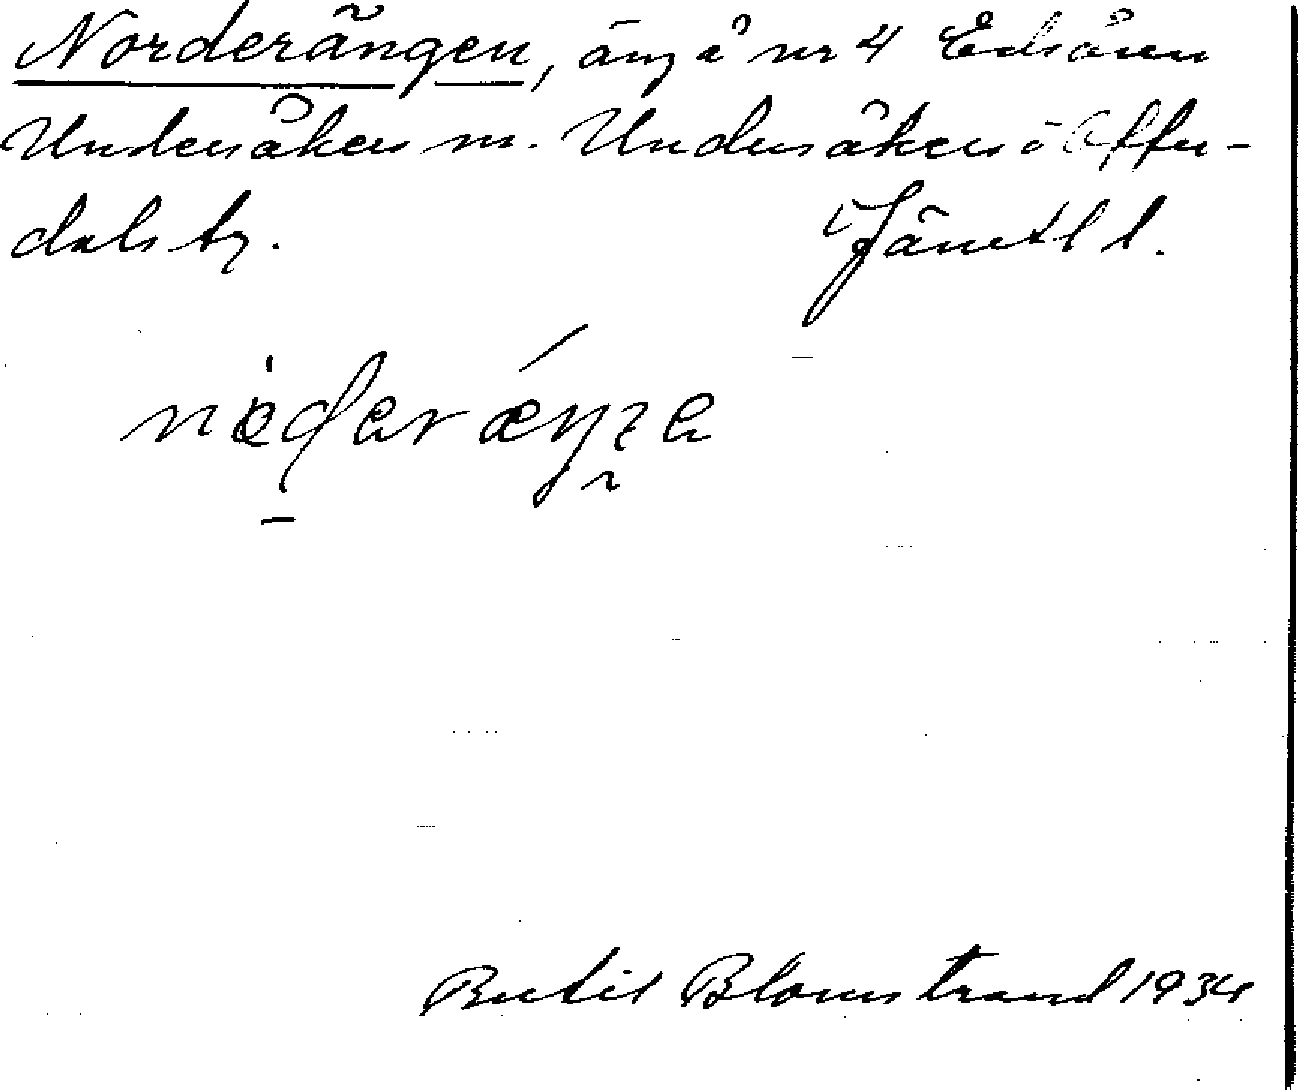 Norderängen, äng å nr 4 Edsåsen
Undersåkers sn. Undersåkers o Offer-
dals tg. Jämtl l.
Bertil Blomstrand 1934